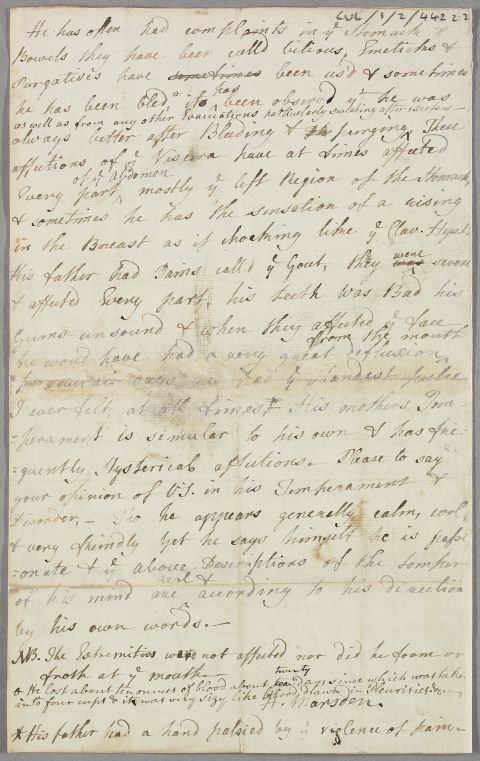 CUL 1/2/442 2:2
He has often had complaints in ye Stomach &
Bowels they have been calld bilious, Emeticks &
Purgatives have sometimes been us'd & sometimes
he has been bled, & it has been observd ye he was
as well as from any other Evacuations, particularly sweating after excess
always better after Bleeding & purging, These
affections of ye Viscera have at times affected
of ye Abdomen
Every part mostly ye left Region of the Stomach,
& sometimes he has the sensation of a rising
in the Breast as if choaking like ye Clav. Hyst.
His father had Pains calld ye Gout, they were severe
& affected Every part, his teeth was Bad his
Gums unsound & when they affected ye face
from the mouth
he would have had a very great defluxion,
I ever felt, at all times* His mothers Tem-
-perament is simular to his own & has fre-
-quently Hysterical affections. Please to say
your opinion of VS. in his Temperament &
Disorder,- Tho he appears generally calm, cool,
& very friendly Yet he says himself he is pass-
-onate & ye above Descriptions of the temper
of his mind are according to his direction
by his own words.-
NB. The Extremities were not affected nor did he foam or
froth at ye mouth
twenty
& He lost about ten ounces of blood about days since which was taken
into four cups & was very sizy like blood drawn in Pleurisies &c
H. Marsden.
* His father had a hand palsied by ye violence of pain-